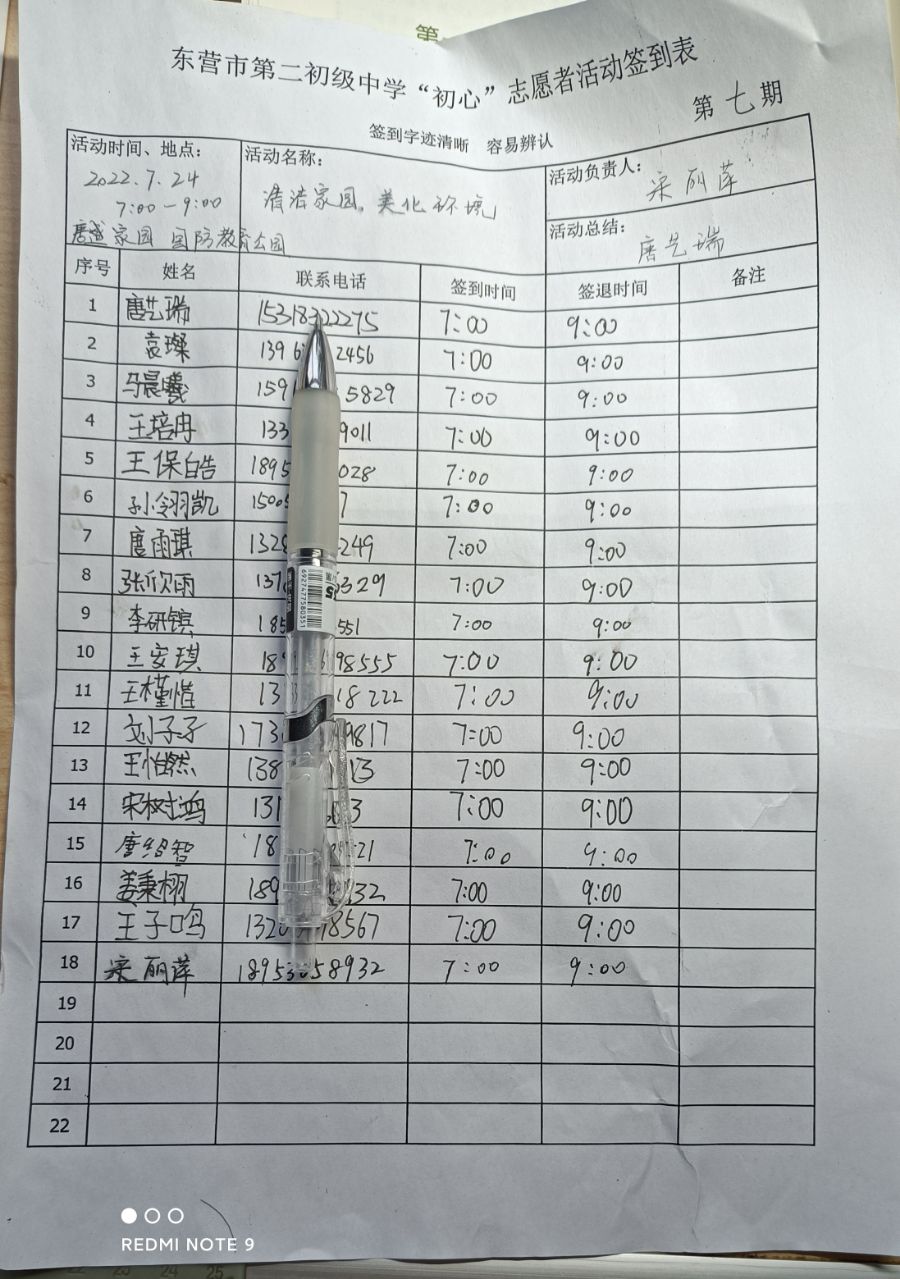 第
东营市第二初级中学“初心”志愿者活动签到表
第七期
签到字迹清晰 容易辨认
活动时间、地点： 活动名称： 活动负责人：
2022.7.24 清洁家园，美化环境 宋丽萍
7:00-9:00 活动总结：
唐盛家园 国防教育公园 唐艺瑞
序号 姓名 联系电话 签到时间 签退时间 备注
1 唐艺瑞 15318322275 7:00 9:00
2 袁璨 139 2456 7:00 9:00
3 马晨曦 159 5829 7:00 9:00
4 王培冉 133 9011 7:00 9:00
5 王保皓 1895 028 7:00 9:00
6 孙翎凯 1500 7 7:00 9:00
7 唐雨琪 1328 249 7:00 9:00
8 张欣雨 137 3329 7:00 9:00
9 李研镔 185 551 7:00 9:00
10 王安琪 18 98555 7:00 9:00
11 王槿惜 13 18222 7:00 9:00
12 刘子子 173 9817 7:00 9:00
13 王怡然 138 13 7:00 9:00
14 宋树鸿 131 3 7:00 9:00
15 唐绍智 18 21 7:00 9:00
16 姜秉栩 189 32 7:00 9:00
17 王子鸣 132 8567 7:00 9:00
18 宋丽萍 1895 58932 7:00 9:00
19
20
21
22
6927477580351
REDMI NOTE 9
22 23 24 25